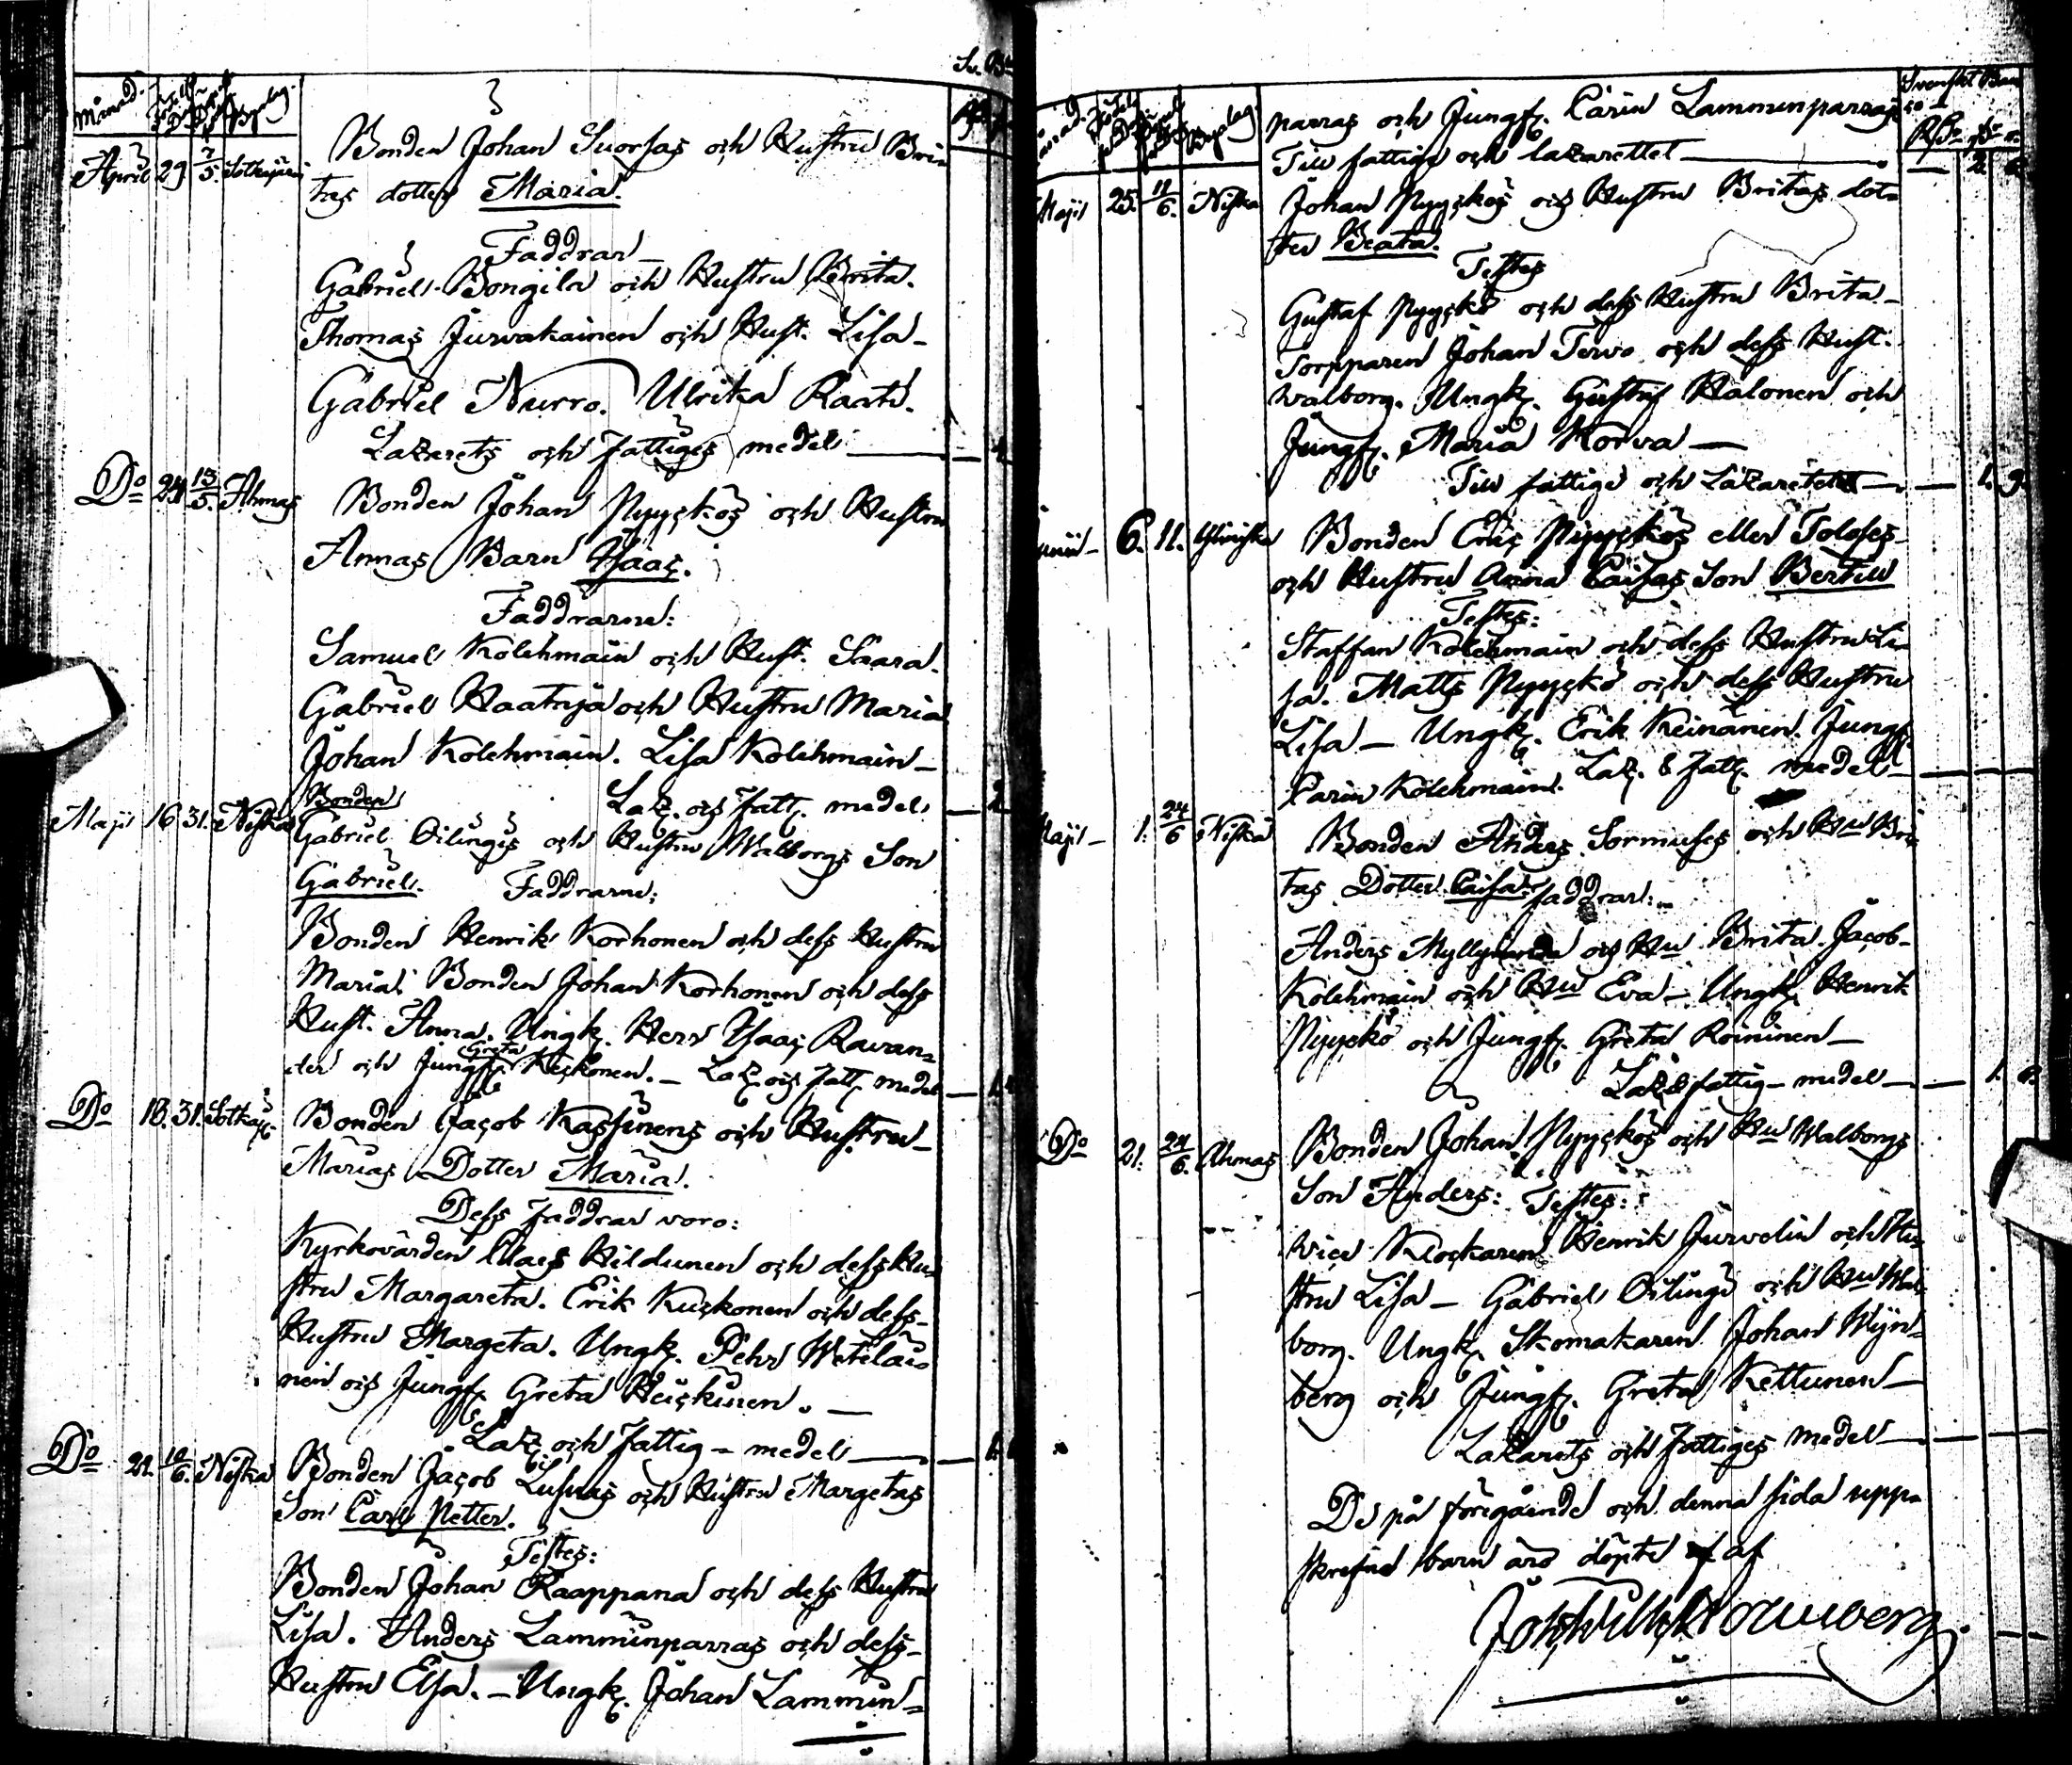 Månad. Byalag.
April 29 7/5. Sotkajärvi Bonden Johan Suorsas och Hustru Bri
tas dotter Maria.
Faddrar
Gabriel Bongila och Hustru Brita.
Thomas Jurvakainen och Hust. Lisa
Gabriel Nurro. Ulrika Raati.
Lazarets och fattiges medel
Do 24 13/5. Ahmas Bonden Johan Nyyckös och Hustru
Annas Barn Isaac.
Faddrarne:
Samuel Kolehmain och Hust. Saara.
Gabriel Haataja och Hustru Maria
Johan Kolehmain. Lisa Kolehmain
Laz. och fatt. medel
Maji 16 31. Niska Bonden Gabriel Oilingis och Hustru Walborgs Son
Gabriel. Faddrarne:
Bonden Henrik Korhonen och dess Hustru
Maria. Bonden Johan Korhonen och dess
Hust. Anna. Ungk. Herr Isaac Ravan=
der och Jungf. Greta Keckonen. Laz. och fatt. medel
Do 18. 31. Sotkaj. Bonden Jacob Kassinens och Hustru
Marias Dotter Maria.
Dess faddrar voro:
Kyrkovärden Claes Hildunen och dess Hu=
stru Margareta. Erik Kuckonen och dess
Hustru Margeta. Ungk. Pehr Wäteläi=
nen och Jungf. Greta Heickinen.
Laz. och Fattig-medel
Do 21. 10/6. Niska Bonden Jacob Lusuas och Hustru Margetas
Son Carl Petter.
Testes:
Bonden Johan Raappana och dess Hustru
Lisa. Anders Lammunparras och dess
Hustru Elsa. Ungk. Johan Lammun=
Svenskt Banco
parras och Jungf. Carin Lammunparras
Till fattige och lazarettet
Maji 25. 11/6. Niska Johan Nyyckös och Hustru Britas dot=
ter Beata.
Testes
Gustaf Nyyckö och dess Hustru Brita
Torpparen Johan Tervo och dess Hust.
Walborg. Ungk. Gustaf Halonen och
Jungf. Maria Korva
Till fattige och Lazarettet 1. 9.
6. 11. Bonden Eric Nyyckös eller Toloses
och Hustru Anna Caisas Son Bertill
Testes:
Staffan Kolehmain och dess Hustru Li=
sa. Matts Nyyckö och dess Hustru
Lisa Ungk. Erik Keinänen. Jungf.
Carin Kolehmain. Laz. & fatt. medel
Maji 1. 24/6 Niska Bonden Anders Sormuses och Hu Bri=
tas Dotter Caisa. faddrar:
Anders och Hu Brita. Jacob
Kolehmain och Hu Eva Ungk. Henrik
Nyyckö och Jungf. Greta Roininen
Laz. & fattig-medel 1.
Do 21. 24/6. Ahmas Bonden Johan Nyyckös och Hu Walborgs
Son Anders: Testes:
Vice Klockaren Henrik Jurvelin och Hu=
stru Lisa Gabriel Oilingi och Hu Wal=
borg. Ungk. Skomakaren Johan Wijn=
berg och Jungf. Greta Kettunen
Lazarets och fattiges medel
De på föregående och denna sida upp=
skrefne barn äro döpte af